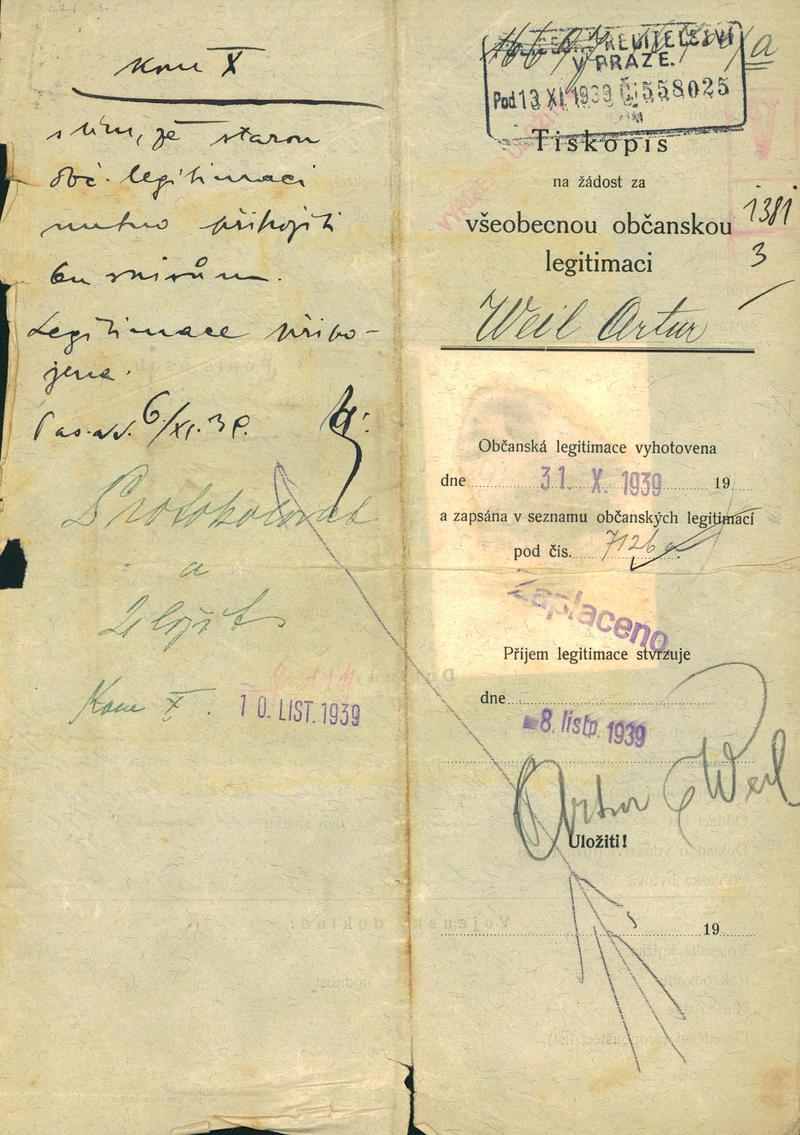 Kom X
s tím, že starou
obč. legitimaci
nutno připojiti
ku spisům.
Legitimace připo-
jena.
6/XI. 39.
Protokolovat
a
Založit
Kom X.
10. LIST. 1939
ŘEDITELSTVÍ
V PRAZE.
Pod 13 XI 1939 Č. 558025
Tiskopis
na žádost za
všeobecnou občanskou
legitimaci
1381
3
Weil Artur
Občanská legitimace vyhotovena
dne 31. X. 1939 19
a zapsána v seznamu občanských legitimací
pod čís. 7126
Zaplaceno
Příjem legitimace stvrzuje
dne
-8. listp. 1939
Artur Weil
Uložiti!
19